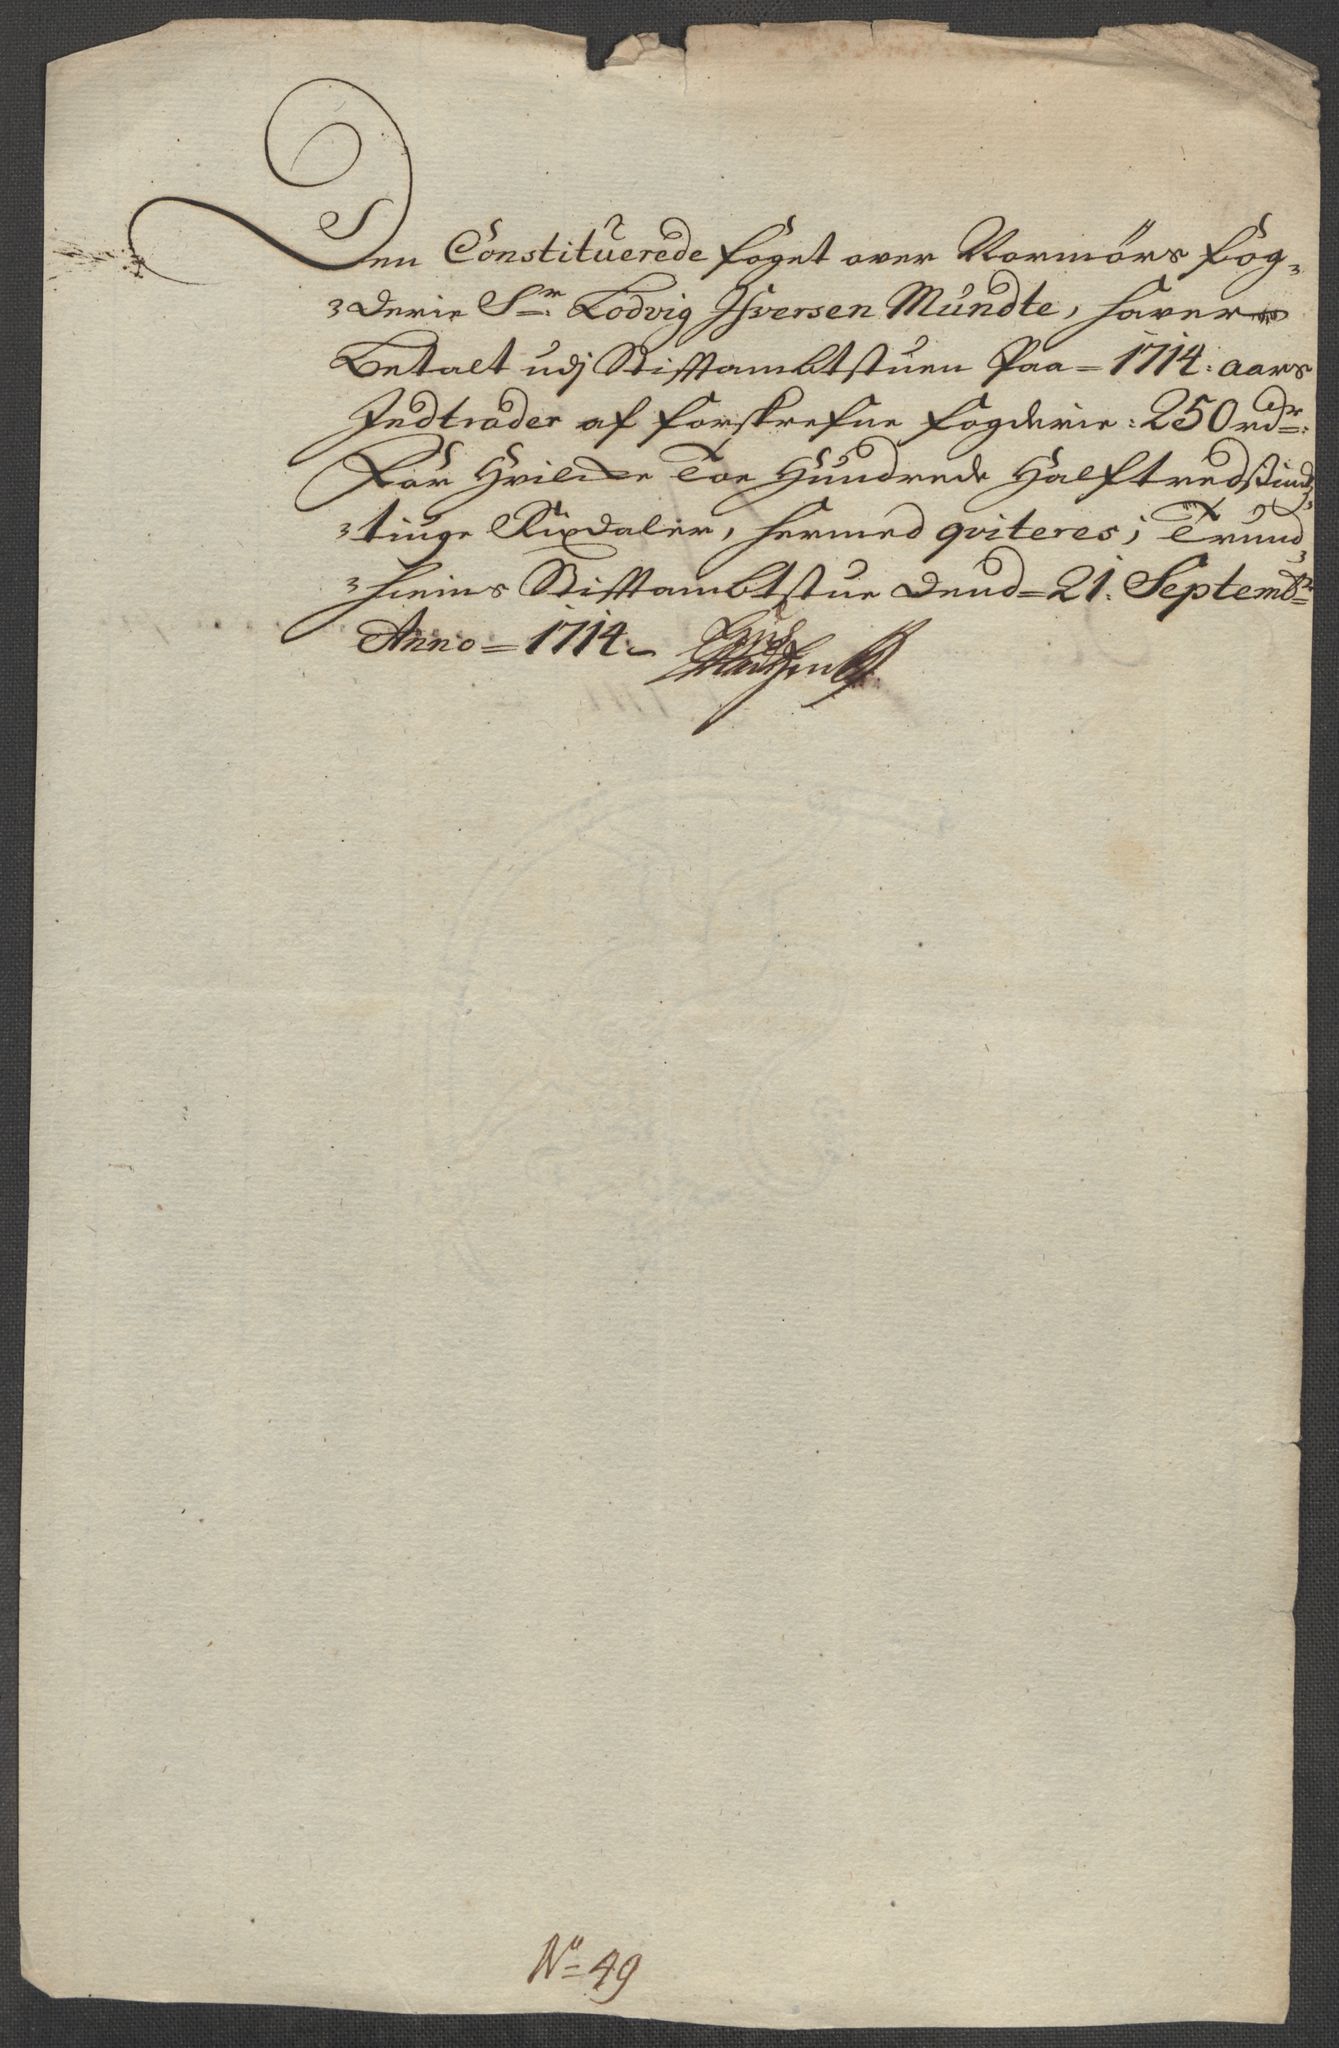 Den Constituerede foget over Normörs fog-
derie Sr. Lodvig Ifversen Mundte, hafver
Betalt udj Stifftambtstuen Paa = 1714: aars
Indtrader af forskrefne fogderie: 250 rdr:
For Hvilcke Toe Hundrede Halftredsinds-
tiuge Rixdaler, hermed qviteres; Trund-
hiems Stifftambtstue dend = 21. Septembr:
Anno = 1714.
No = 49